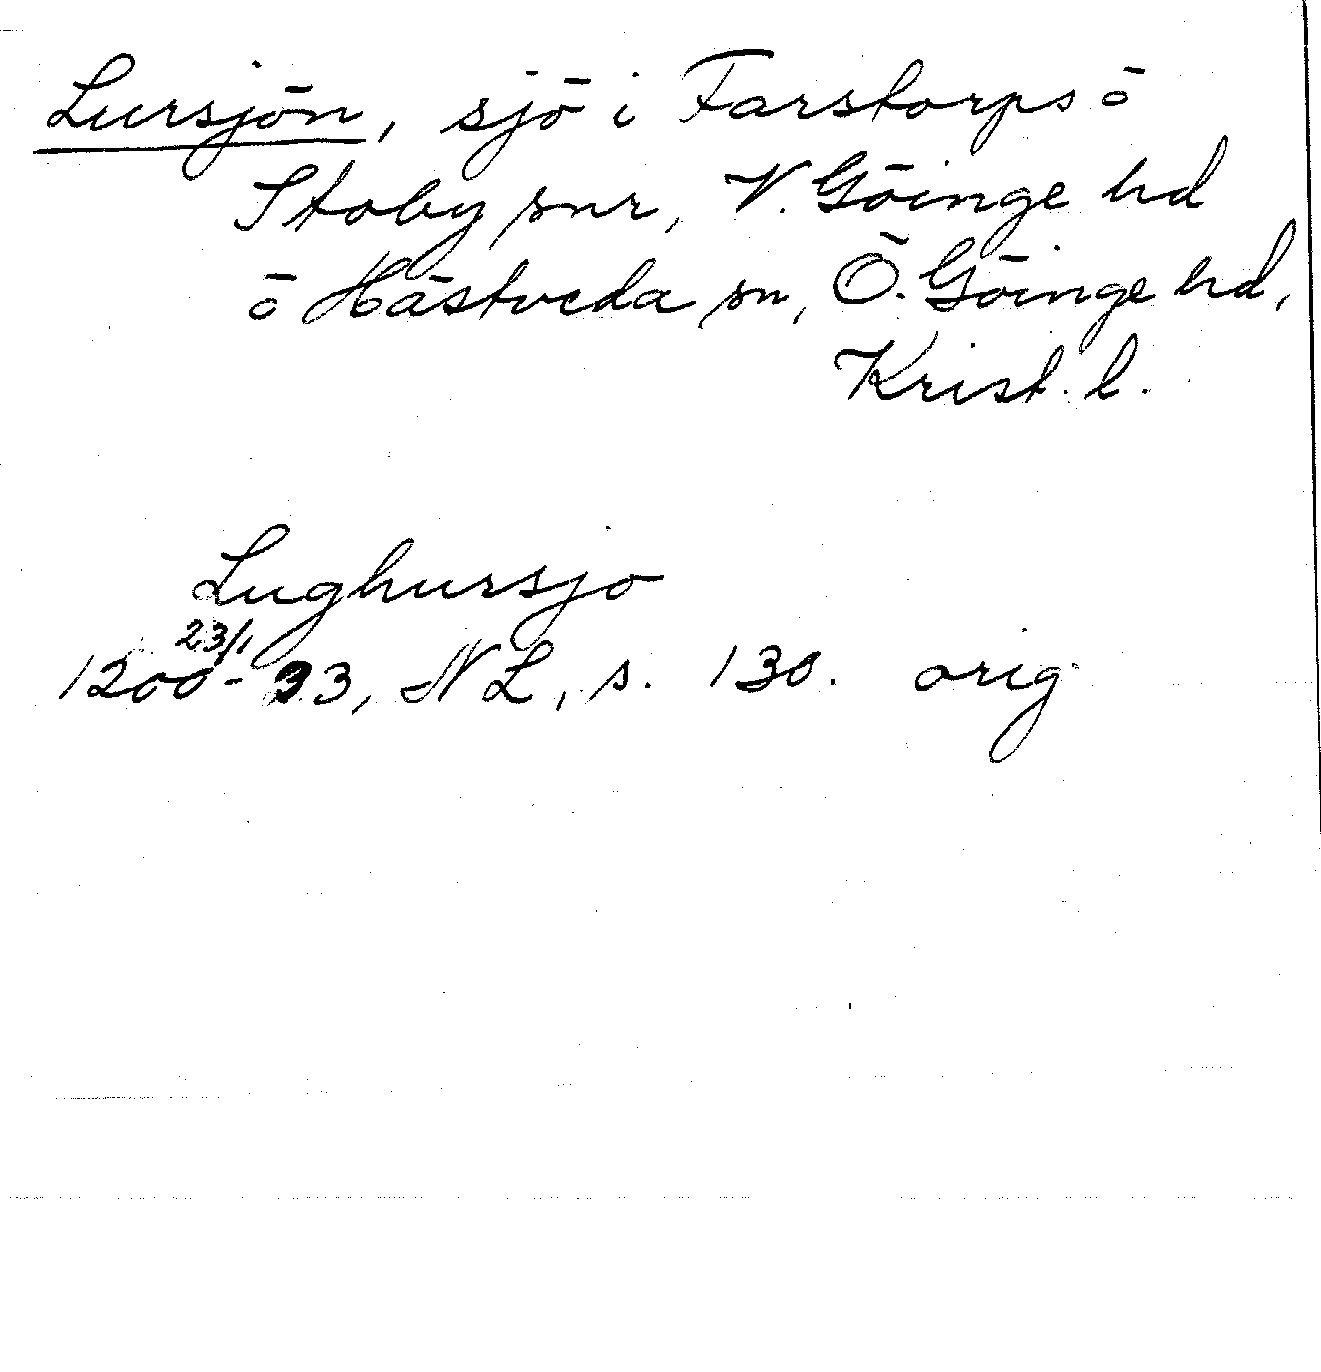 Lursjön, sjö i Farstorps o
Stoby snr, V. Göinge hd
o Hästveda sn, Ö. Göinge hd,
Krist. l.
Lughursjo
23/1
1200-33, NL, s. 130. orig